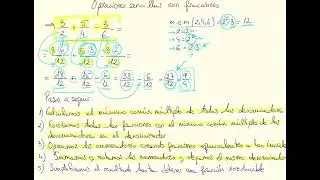 Operaciones sencillas con fracciones
3/2 + 5/4 - 3/6 =
m.c.m (2,4,6) =
= 18/12 + 15/12 - 6/12 = 33/12 - 6/12 = 27/12 = 9/4
Pasos a seguir
1) Calculamos el mínimo común múltiplo de todos los denominadores
2) Escribimos todas las fracciones con el mínimo común múltiplo de los
denominadores en el denominador
3) Operamos los numeradores creando fracciones equivalentes a las
4) Sumamos y restamos los numeradores y dejamos el mismo denominador
5) Simplificamos el resultado hasta obtener una fracción irreducible